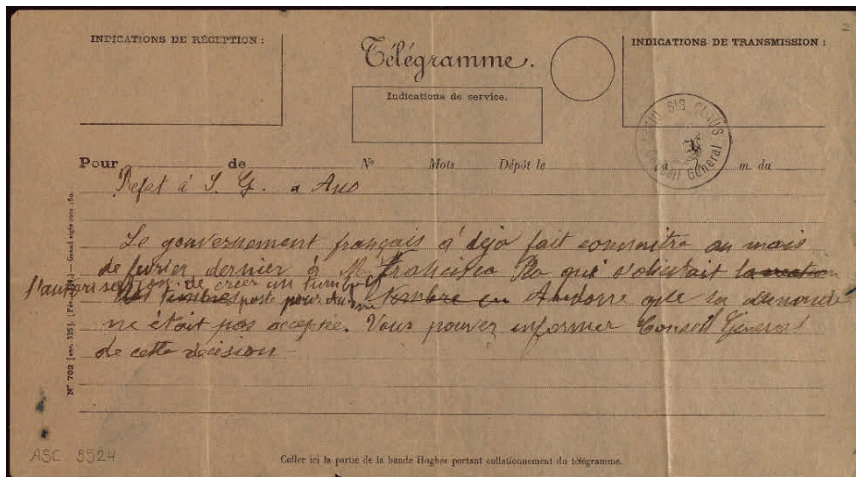 2
INDICATIONS DE RÉCEPTION :
Télégramme.
INDICATIONS DE TRANSMISSION :
Indications de service.
SIS CLAUS
General
Pour de N° Mots Dépôt le à m. du
Prefet à S. G. a
Le gouvernement français a déjà fait connaitre au mois
de fevrier dernier à M. Francisco Pla qui solicitait
l'autorisation de creer un timbre
poste pour Andorre que sa demande
ne était pas acceptée. Vous pouvez informer Conseil General
de cette decision
N° 702
Coller ici la partie de la bande Hughes portant collationnement du télégramme.
ASC. 5524